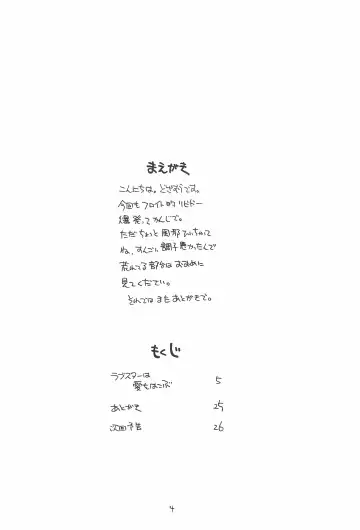 まえがき
こんにちは。どざむらです。
今回もフロイト的リビドー
爆発ってかんじで。
ただちょっと風邪ひいちゃって
ね、すんごい調子悪かったんで
荒れてる部分は
見てください。
それではまたあとがきで。
もくじ
ラブスターは
愛をはこぶ 5
あとがき 25
次回予告 26
4